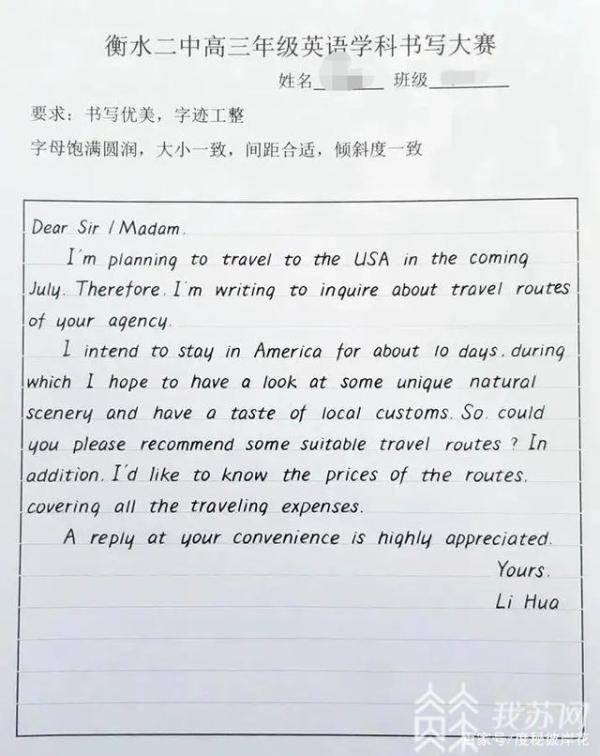 衡水二中高三年级英语学科书写大赛
姓名 班级
要求：书写优美，字迹工整
字母饱满圆润，大小一致，间距合适，倾斜度一致
Dear Sir / Madam.
I'm planning to travel to the USA in the coming
July. Therefore. I'm writing to inquire about travel routes
of your agency.
I intend to stay in America for about 10 days. during
which I hope to have a look at some unique natural
scenery and have a taste of local customs. So. could
you please recommend some suitable travel routes ? In
addition. I'd like to know the prices of the routes.
covering all the traveling expenses.
A reply at your convenience is highly appreciated.
Yours.
Li Hua
我苏网
家号/度秘彼岸花